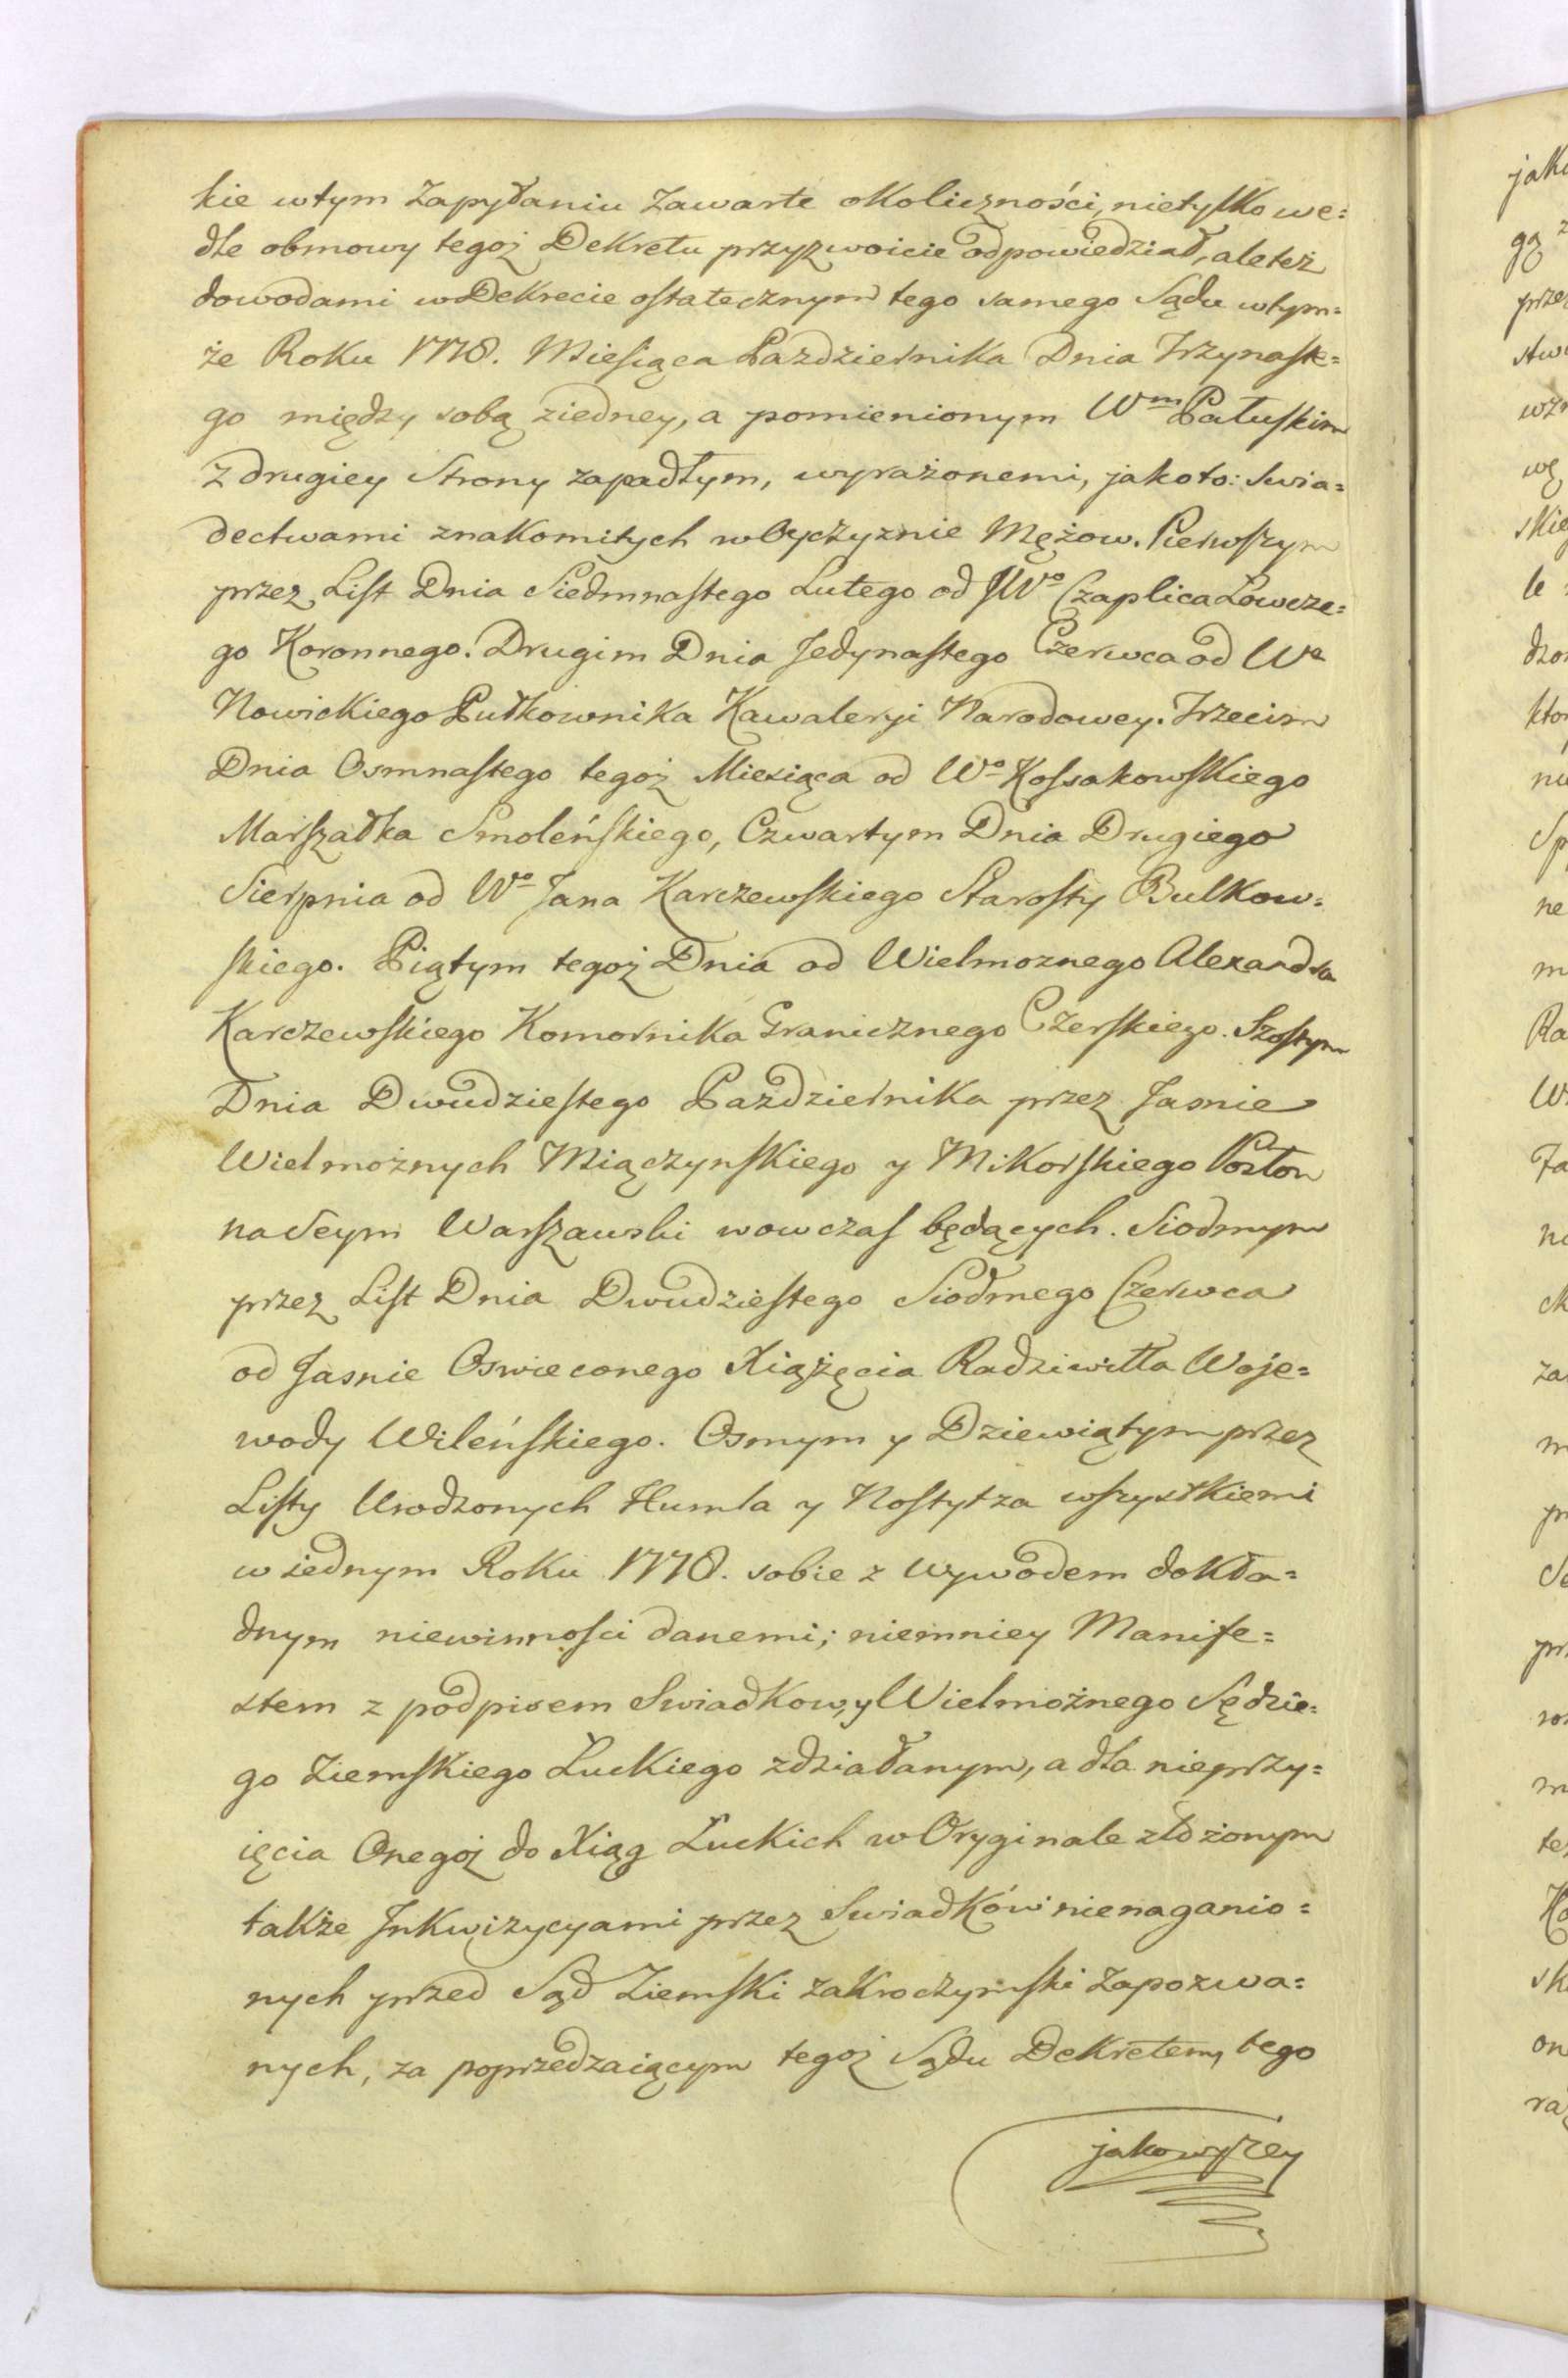 kie wtym Zapytaniu Zawarte okoliczności, nietylko we=
dle obmowy tegoż Dekretu przyzwoicie odpowiedział, ale też
dowodami w Dekrecie ostatecznym tego samego Sądu wtym=
że Roku 1778. Miesiąca Pazdziernika Dnia Trzynaste=
go między sobą ziedney, a pomienionym Wm Pałuskim
z drugiey Strony zapadłym, wyrażonemi, jako to: Swia=
dectwami znakomitych w Oyczyznie Mężow. Pierwszym
przez List Dnia Siedmnastego Lutego od JWo Czaplica Łowcze=
go Koronnego. Drugim Dnia Jedynastego Czerwca od Wo
Nowickiego Pułkownika Kawaleryi Narodowey. Trzecim
Dnia Osmnastego tegoż Miesiąca od Wo Kossakowskiego
Marszałka Smoleńskiego, Czwartym Dnia Drugiego
Sierpnia od Wo Jana Karczewskiego Starosty Bulkow=
skiego. Piątym tegoż Dnia od Wielmoznego Alexandra
Karczewskiego Komornika Granicznego Czerskiego. Szostym
Dnia Dwudziestego Pazdziernika przez Jasnie
Wielmożnych Miączynskiego y Mikorskiego Posłow
na Seym Warszawski wowczas będących. Siodmym
przez List Dnia Dwudziestego Siodmego Czerwca
od Jasnie Oswieconego Xiążęcia Radziwiłła Woje=
wody Wileńskiego. Osmym y Dziewiątym przez
Listy Urodzonych Humla y Nostytza wszystkiemi
w iednym Roku 1778. sobie z wywodem dokła=
dnym niewinności danemi; niemniey Manife=
stem z podpisem Swiadkow, y Wielmożnego Sędzie=
go Ziemskiego Łuckiego zdziałanym, a dla nieprzy=
ięcia Onegoż do Xiąg Łuckich w Oryginale złożonym
także Jnkwizycyami przez Swiadków nienaganio=
nych przed Sąd Ziemski Zakroczymski zapozwa=
nych, za poprzedzaiącym tegoż Sądu Dekretem, tego
jakowyżey